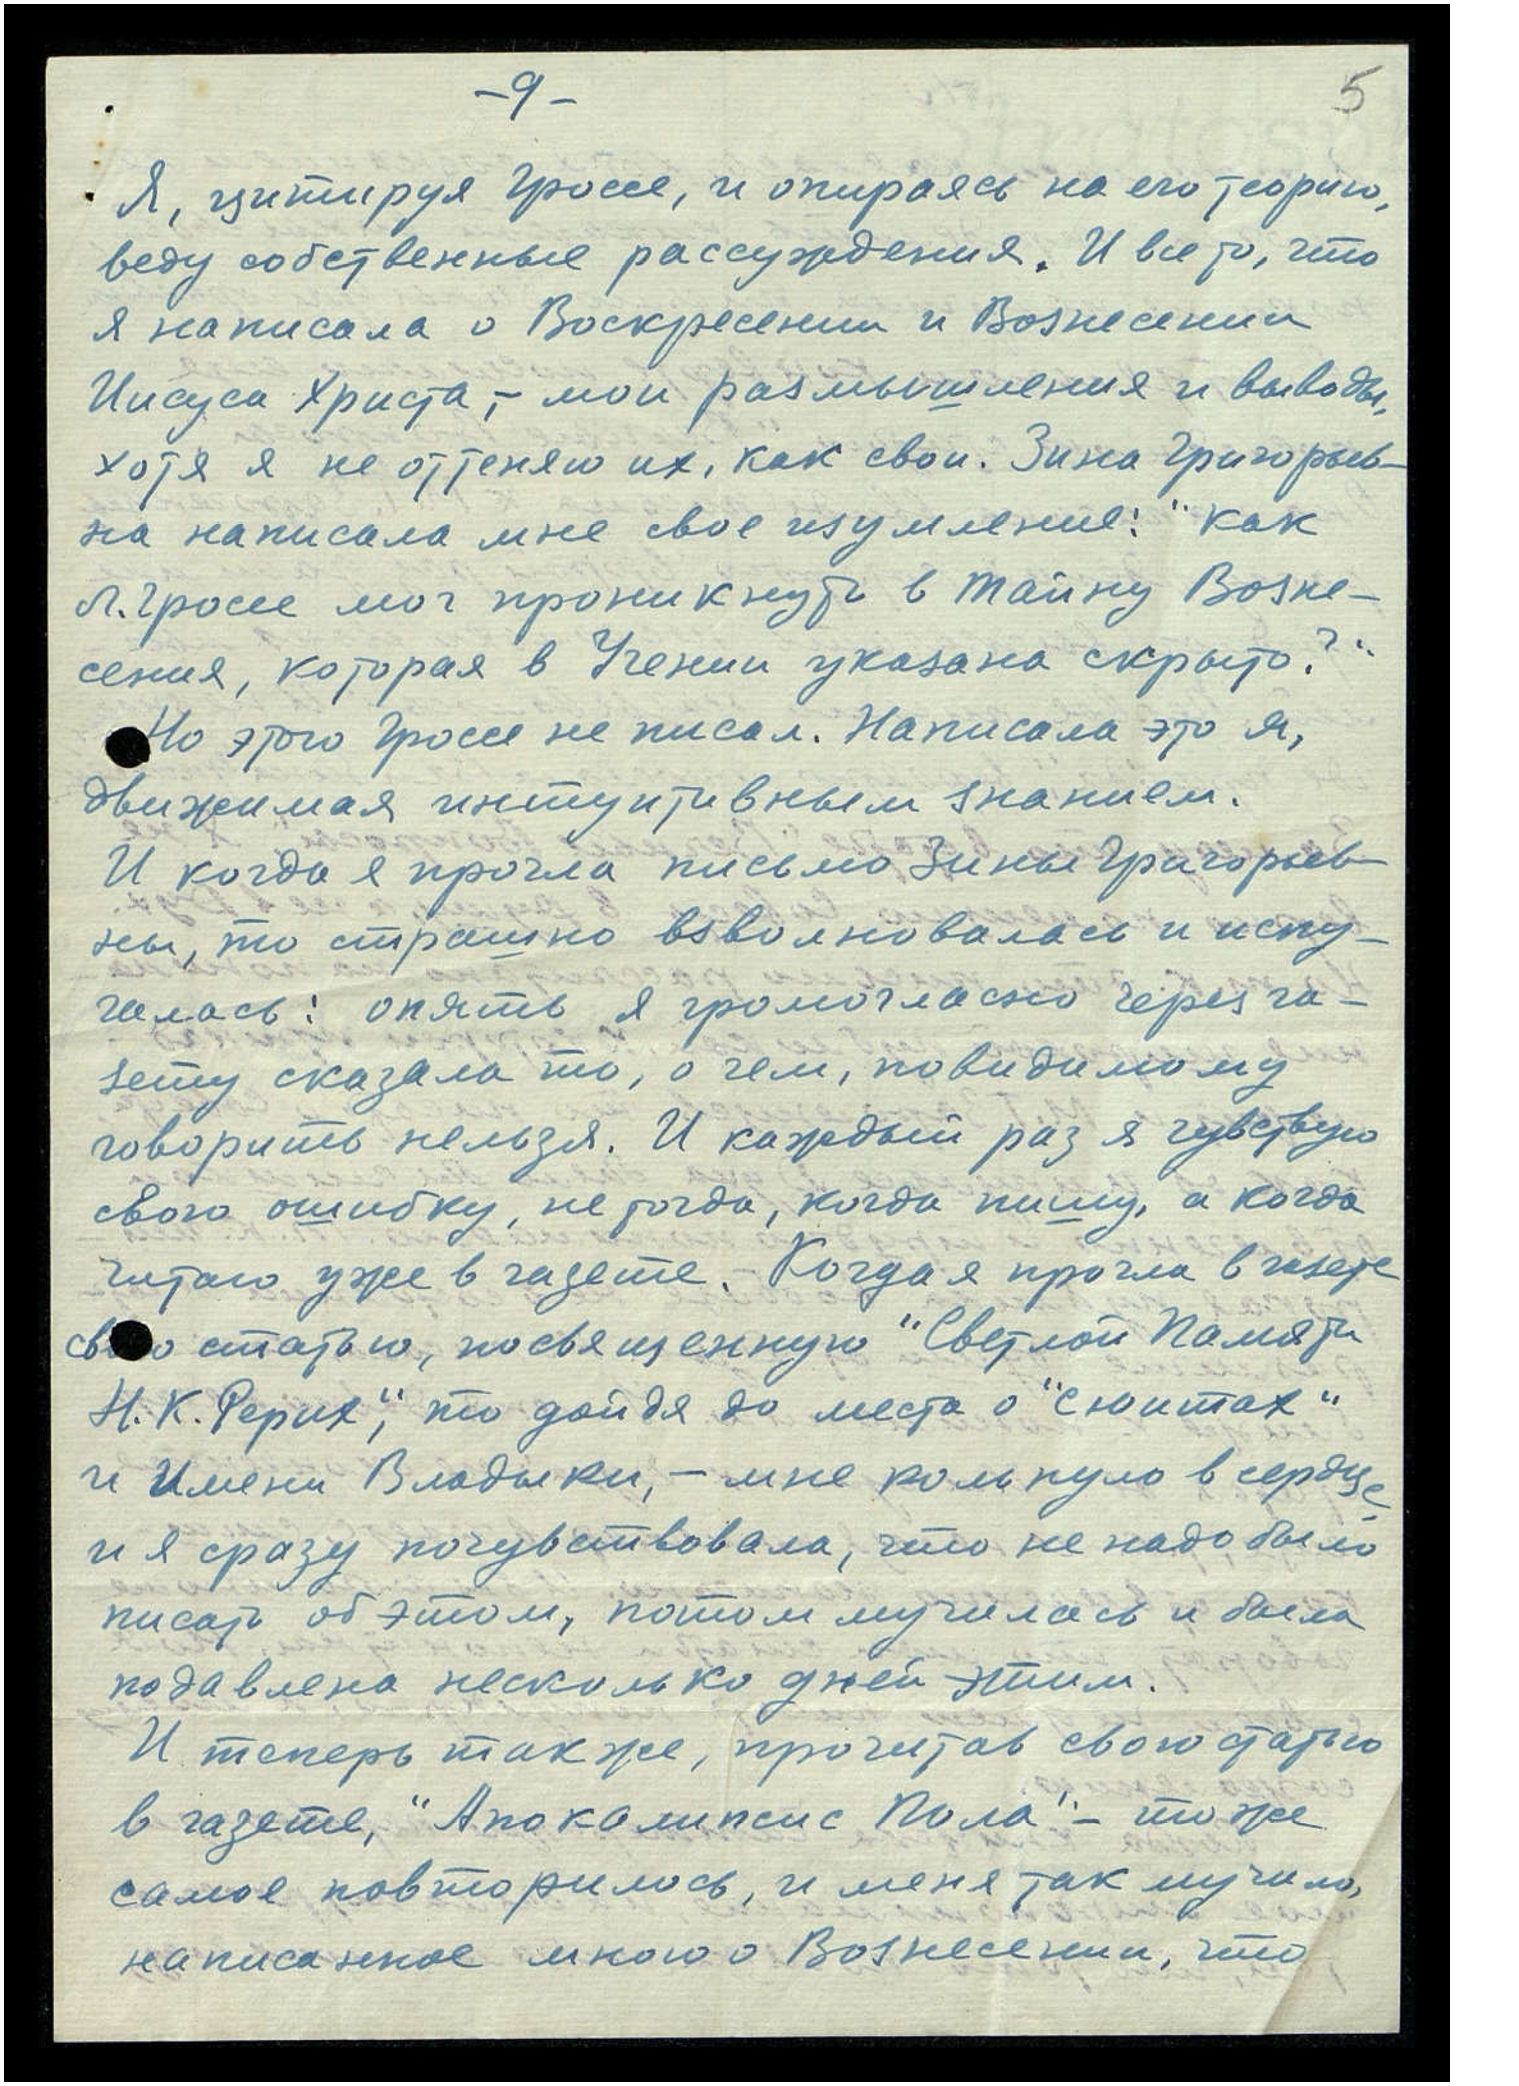 -9-
5
Я, цитируя Гроссе, и опираясь на его теорию,
веду собственные рассуждения. И все то, что
я написала о Воскресении и Вознесении
Иисуса Христа, - мои размышления и выводы,
хотя я не оттеняю их, как свои. Зина Григорьев-
на написала мне свое изумление: "Как
Л. Гроссе мог проникнуть в тайну Возне-
сения, которая в Учении указана скрыто?"
Но этого Гроссе не писал. Написала это я,
движимая интуитивным знанием.
И когда я прочла письмо Зины Григорьев-
ны, то страшно взволновалась и испу-
галась: опять я громогласно через га-
зету сказала то, о чем, повидимому
говорить нельзя. И каждый раз я чувствую
свою ошибку, не тогда, когда пишу, а когда
читаю уже в газете. Когда я прочла в газете
свою статью, посвященную "Светлой Памяти
Н. К. Рерих", то дойдя до места о "сюитах"
и Имени Владыки, - мне кольнуло в сердце
и я сразу почувствовала, что не надо было
писать об этом, потом мучилась и была
подавлена несколько дней этим.
И теперь также, прочитав свою статью
в газете, "Апокалипсис Пола" - то же
самое повторилось, и меня так мучило,
написанное мною о Вознесении, что